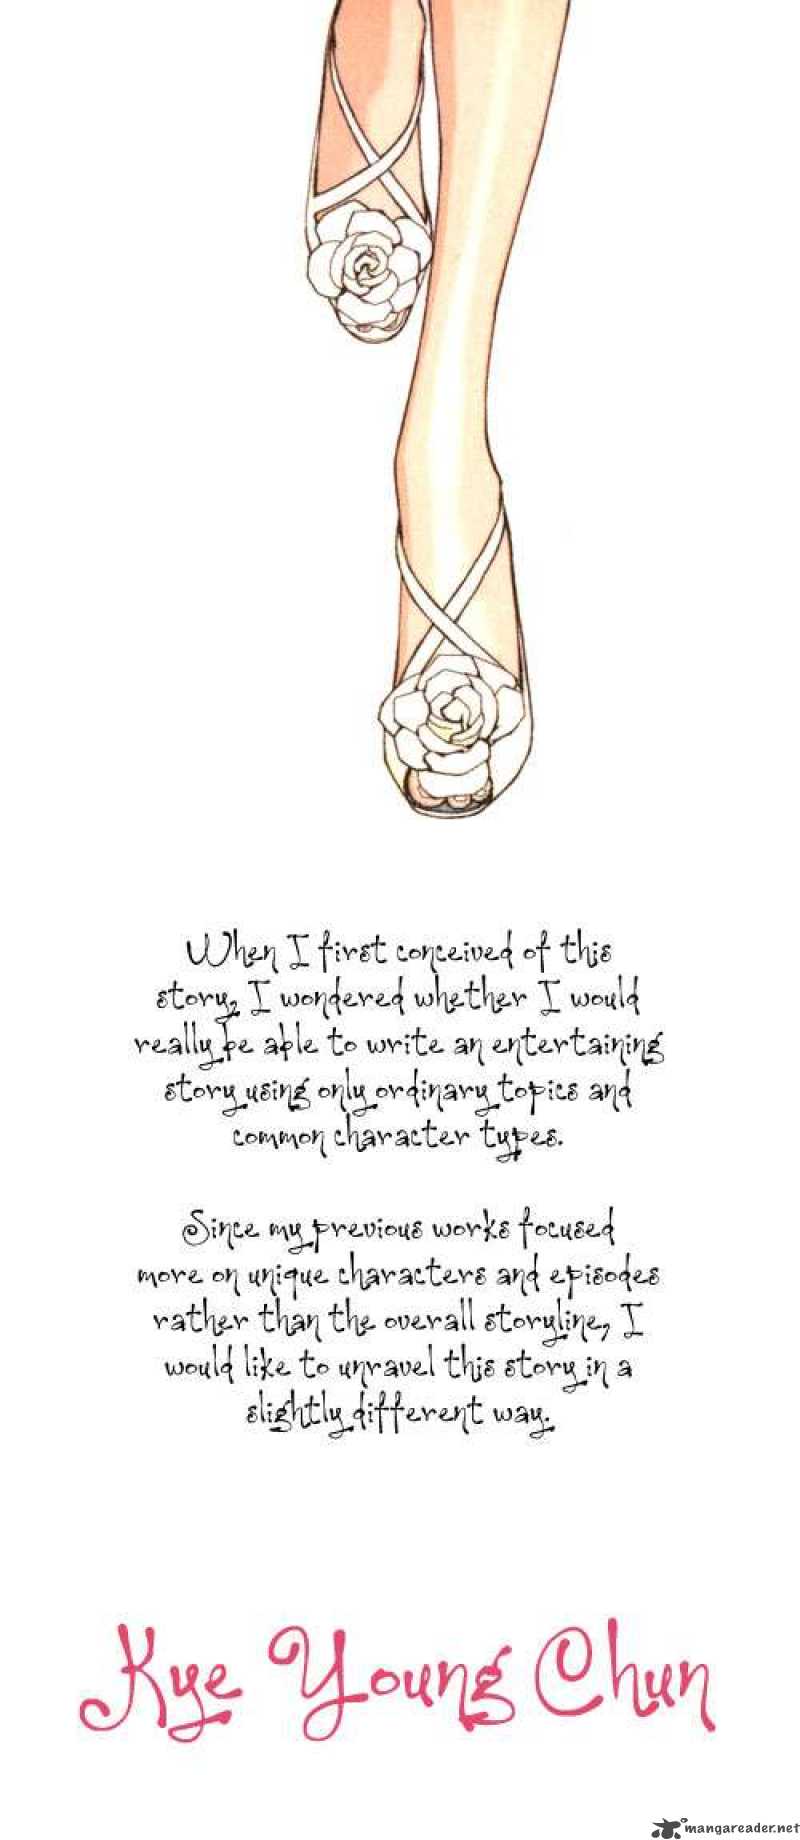 When I first conceived of this
story, I wondered whether I would
really be able to write an entertaining
story using only ordinary topics and
common character types.
Since my previous works focused
more on unique characters and episodes
rather than the overall storyline, I
would like to unravel this story in a
slightly different way.
Kye Young Chun
mangareader.net